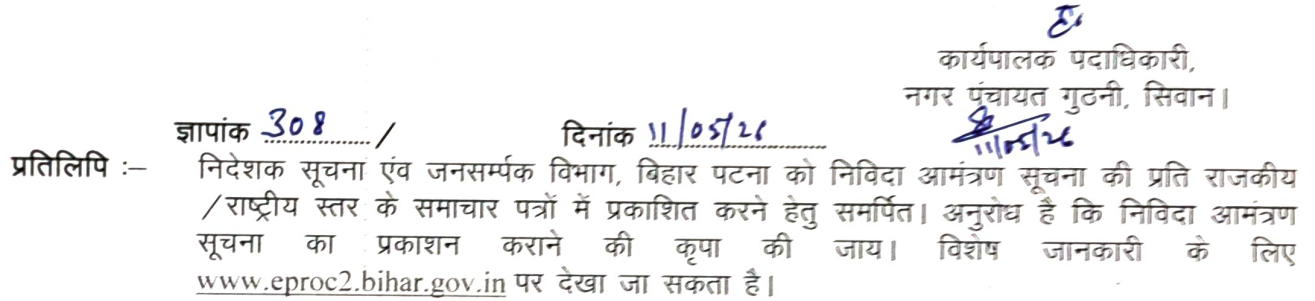 कार्यपालक पदाधिकारी,
नगर पंचायत गुठनी, सिवान।
ज्ञापांक 308 /
दिनांक 11/05/26
11/05/26
प्रतिलिपि :– निदेशक सूचना एंव जनसर्म्पक विभाग, बिहार पटना को निविदा आमंत्रण सूचना की प्रति राजकीय
/राष्ट्रीय स्तर के समाचार पत्रों में प्रकाशित करने हेतु समर्पित। अनुरोध है कि निविदा आमंत्रण
सूचना का प्रकाशन कराने की कृपा की जाय। विशेष जानकारी के लिए
www.eproc2.bihar.gov.in पर देखा जा सकता है।